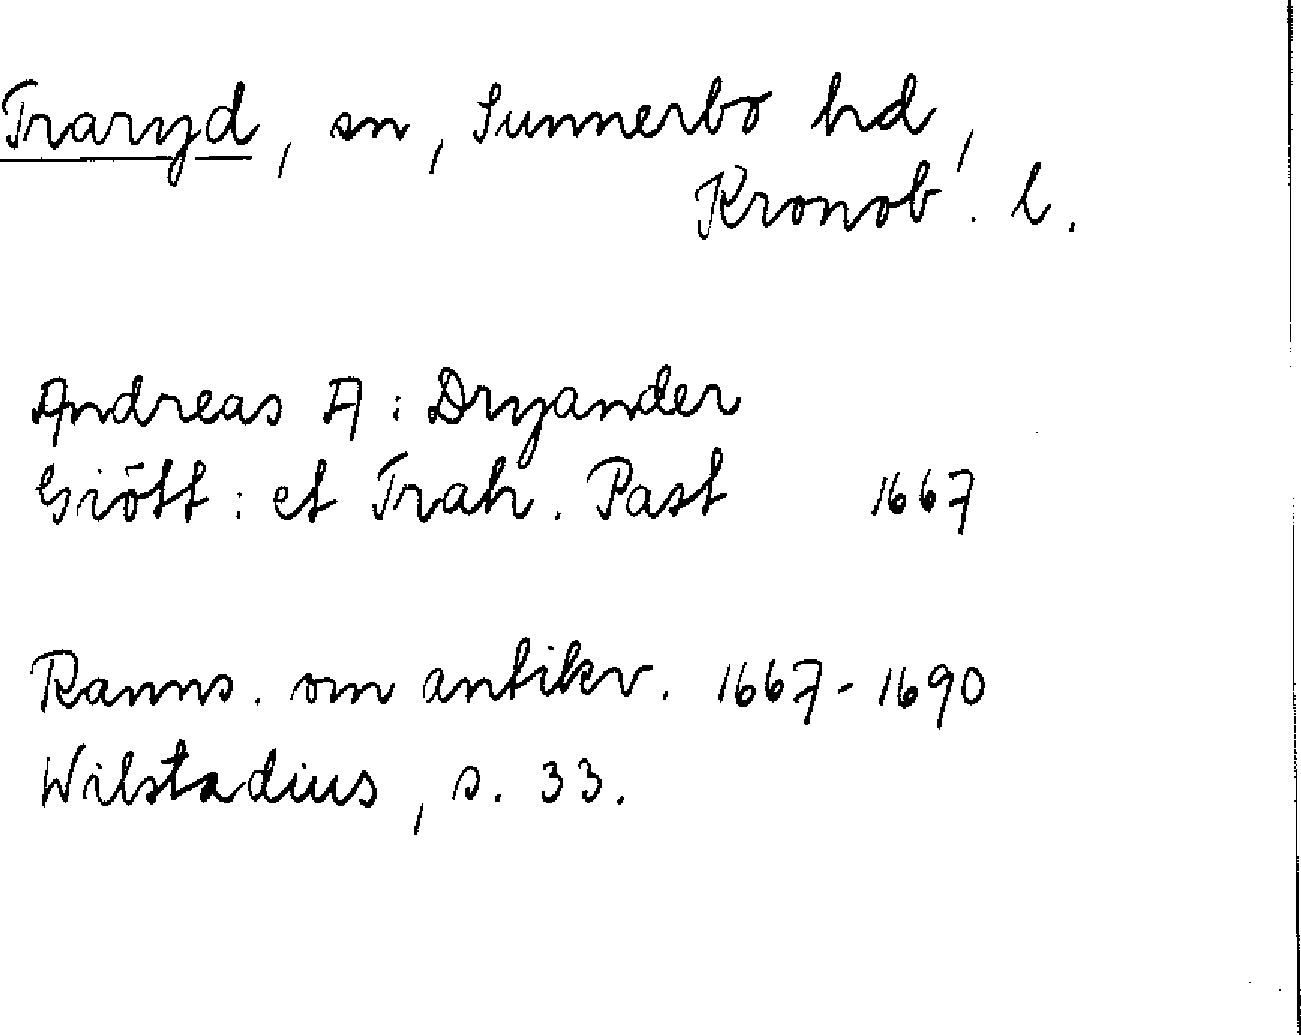 Traryd, sn, Sunnerbo hd,
Kronob. l.
Andreas A: Dryander
Giött: et Trah. Past 1667
Ranns. om antikv. 1667-1690
Wilstadius, s. 33.